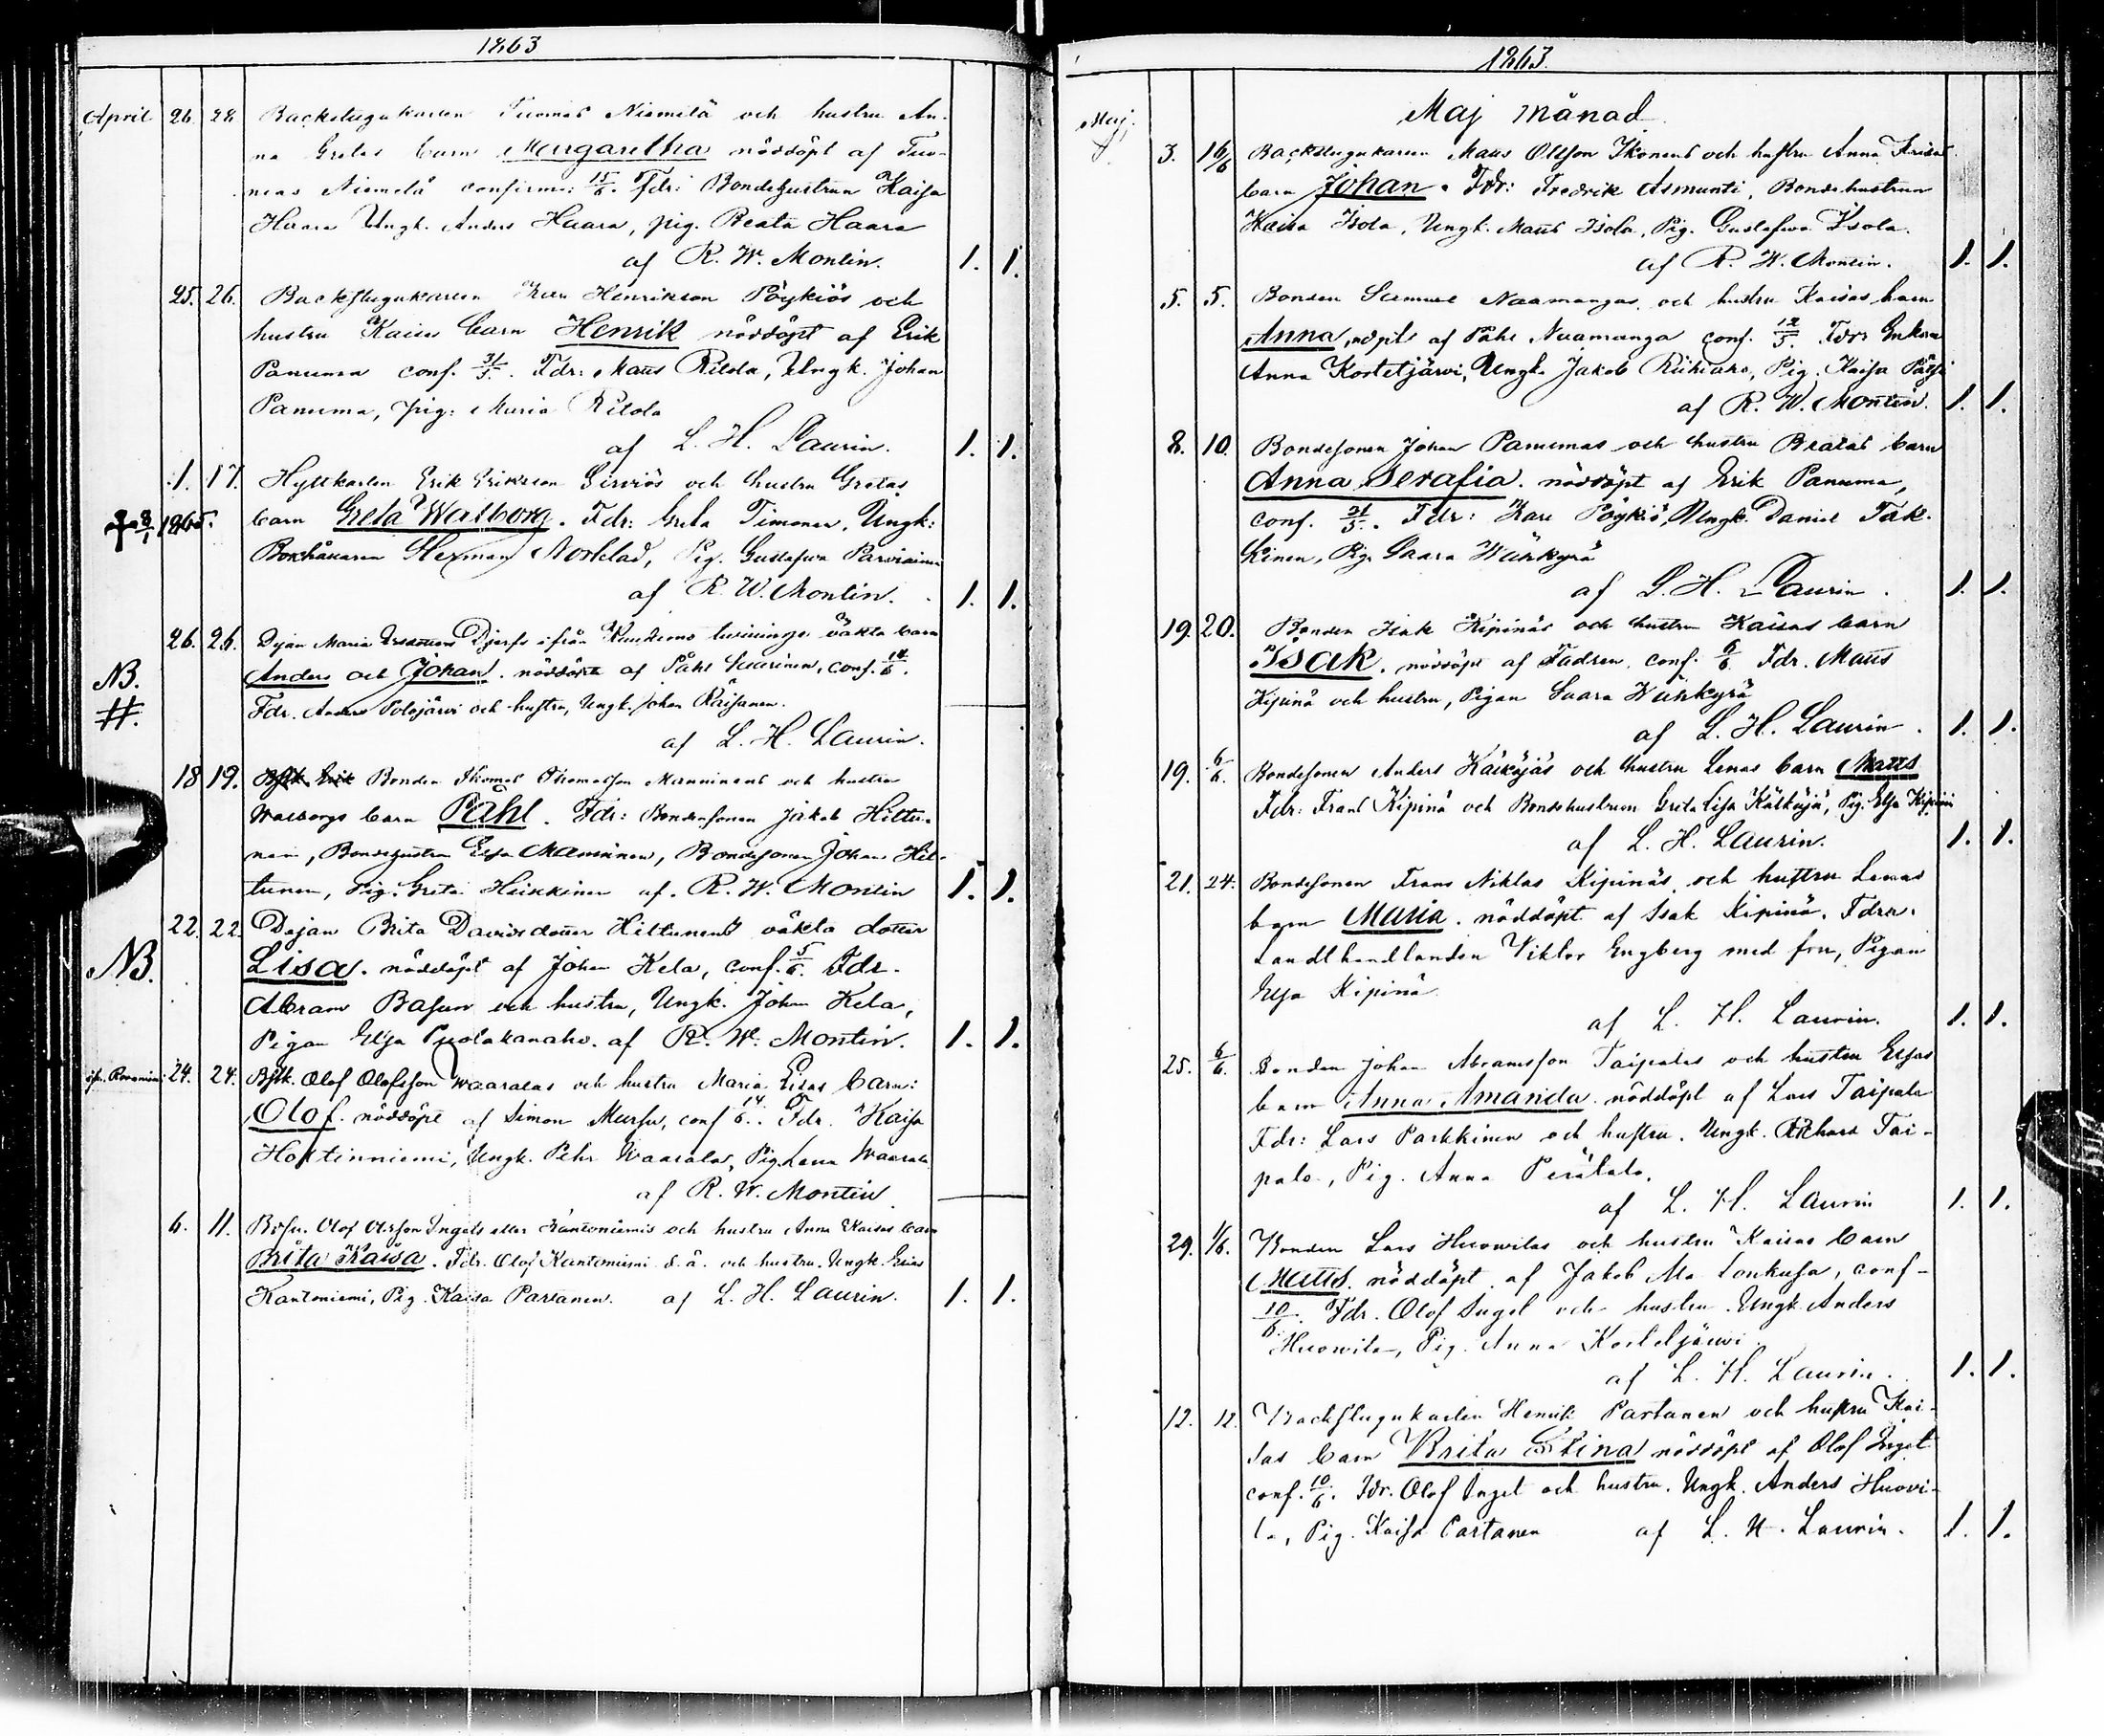 1863
April 26. 28. Backstugukarlen Tuomas Niemelä och hustru An-
na Gretas barn Margaretha nöddöpt af Tuo-
mas Niemelä confirm: 15/6. Fdr: Bondehustrun Kaisa
Haara Ungk. Anders Haara, pig. Beata Haara
af R. W. Montin. 1. 1.
25. 26. Backstugukarlen Henrikson Pöykiös och
hustru Kaisas barn Henrik nöddöpt af Erik
Panuma conf. 31/5. Fdr: Matts Ritola, Ungk. Johan
Panuma, pig: Maria Ritola
af L. H. Laurin. 1. 1.
1. 17. Hyttkarlen Erik Erikson Serviös och hustru Gretas
† 8/1 1865. barn Greta Walborg. Fdr: Greta Timonen, Ungk:
Bokhållaren Herman Norklad, Pig. Gustafva Parviainen
af R. W. Montin. 1. 1.
26. 26. Djan Maria Djerfs ifrån Kuusamo tvillingar oäkta barn
NB. Anders och Johan. nöddöpte af Påhl Suurinen, conf. 14/6.
#. Fdr. Anders Polojärvi och hustru, Ungk. Johan Räisänen.
af L. H. Laurin.
18 19. Bonden Thomas Thomasson Manninens och hustru
Walborgs barn Påhl. Fdr: Bondesonen Jakob Hiltu-
nen, Bondehustru Elsa Manninen, Bondesonen Johan Hil-
tunen, Pig. Greta Heikkinen af. R. W. Montin 1. 1.
22. 22. Dejan Brita Davidsdotter Hiltunens oäkta dotter
NB. Lisa. nöddöpt af Johan Kela, conf. 5/6. Fdr.
Abram Basun och hustru, Ungk. Johan Kela,
Pigan Elsa Puolakanaho. af R. W. Montin. 1. 1.
24. 24. Bstk. Olof Olofsson Waaralas och hustru Maria Lisas barn:
Olof. nöddöpt af Simon Mursu, conf 14/6. Fdr. Kaisa
Hostinniemi, Ungk. Pehr Waaralas, Pig Lena Waarala
af R. W. Montin
6. 11. Bdsn. Olof Olsson Ingets eller Kantoniemis och hustru Anna Kaisas barn
Brita Kaisa. Fdr. Olof Kantoniemi d. ä. och hustru. Ungk. Erias
Kantoniemi, Pig. Kaisa Partanen. af L. H. Laurin. 1. 1.
1863.
Maj månad
Maj. 3. 16/6 Backstugukarlen Matts Olsson Ikonens och hustru Anna Fridas
barn Johan. Fdr: Fredrik Asmunti, Bondehustrun
Kaisa Isola, Ungk. Matts Isola, Pig. Gustafva Isola.
af R. W. Montin. 1. 1.
5. 5. Bonden Samuel Naamangas och hustru Kaisas barn
Anna, ndpt. af Påhl Naamanga conf. 12/5. Fdr: Enkan
Anna Kostetjärvi, Ungk. Jakob Riihiaho, Pig. Kaisa Pätsi
af R. W. Montin. 1. 1.
8. 10. Bondesonen Johan Panumas och hustru Beatas barn
Anna Serafia. nöddöpt af Erik Panuma,
conf. 31/5. Fdr: Pöykiö, Ungk. Daniel Tak-
kinen, Pig. Saara Wähkyrä
af L. H. Laurin. 1. 1.
19. 20. Bonden Isak Kipinäs och hustru Kaisas barn
Isak. nöddöpt af Fadren. conf. 9/6. Fdr. Matts
Kipinä och hustru, Pigan Saara Wähkyrä
af L. H. Laurin. 1. 1.
19. 6/6. Bondesonen Anders Kälkäjäs och hustru Lenas barn Matts
Fdr: Frans Kipinä och Bondehustrun Greta Lisa Kälkäjä, Pig. Elsa Kipinä
af L. H. Laurin. 1. 1.
21. 24. Bondesonen Frans Niklas Kipinäs och hustru Lenas
barn Maria. nöddöpt af Isak Kipinä. Fdrr.
Landthandlanden Viktor Engberg med fru, Pigan
Elsa Kipinä
af L. H. Laurin. 1. 1.
25. 6/6. Bonden Johan Abramsson Taipales och hustru Elsas
barn Anna Amanda. nöddöpt af Lars Taipale
Fdr: Lars Parkkinen och hustru. Ungk. Rikhard Tai-
pale, Pig. Anna Perätalo.
af L. H. Laurin 1. 1.
29. 1/6. Bonden Lars Huovilas och hustru Kaisas barn
Matts. nöddöpt af Jakob Ala Lonkusa, conf-
10/6. Fdr. Olof Inget och hustru. Ungk. Anders
Huovila, Pig. Anna Kostetjärvi.
af L. H. Laurin. 1. 1.
12. 12. Backstugukarlen Henrik Partanen och hustru Kai-
sas barn Brita Stina nöddöpt af Olof Inget
conf. 10/6. Fdr. Olof Inget och hustru. Ungk. Anders Huovi-
la, Pig. Kaisa Partanen af L. H. Laurin. 1. 1.